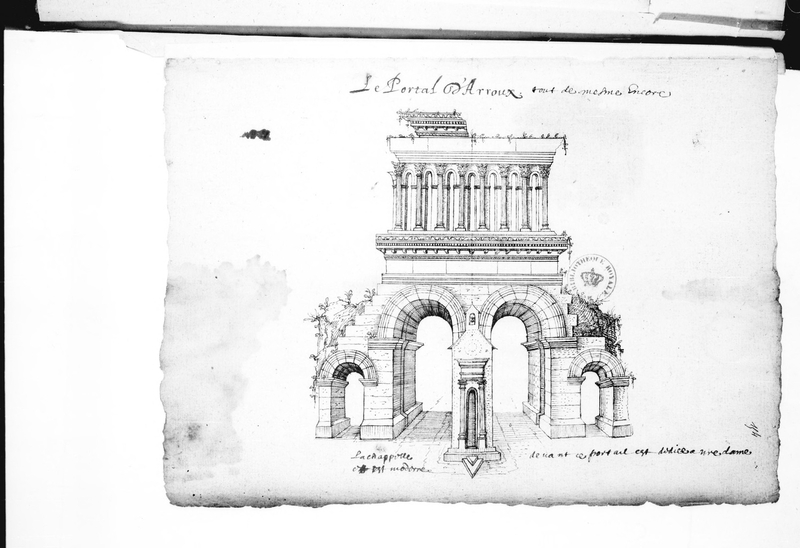 Le Portal d'Arroux. tout de mesme Encore
BIBLIOTHEQUE ROYALE
La chappelle devant ce portail est dédice a nre dame
est moderne